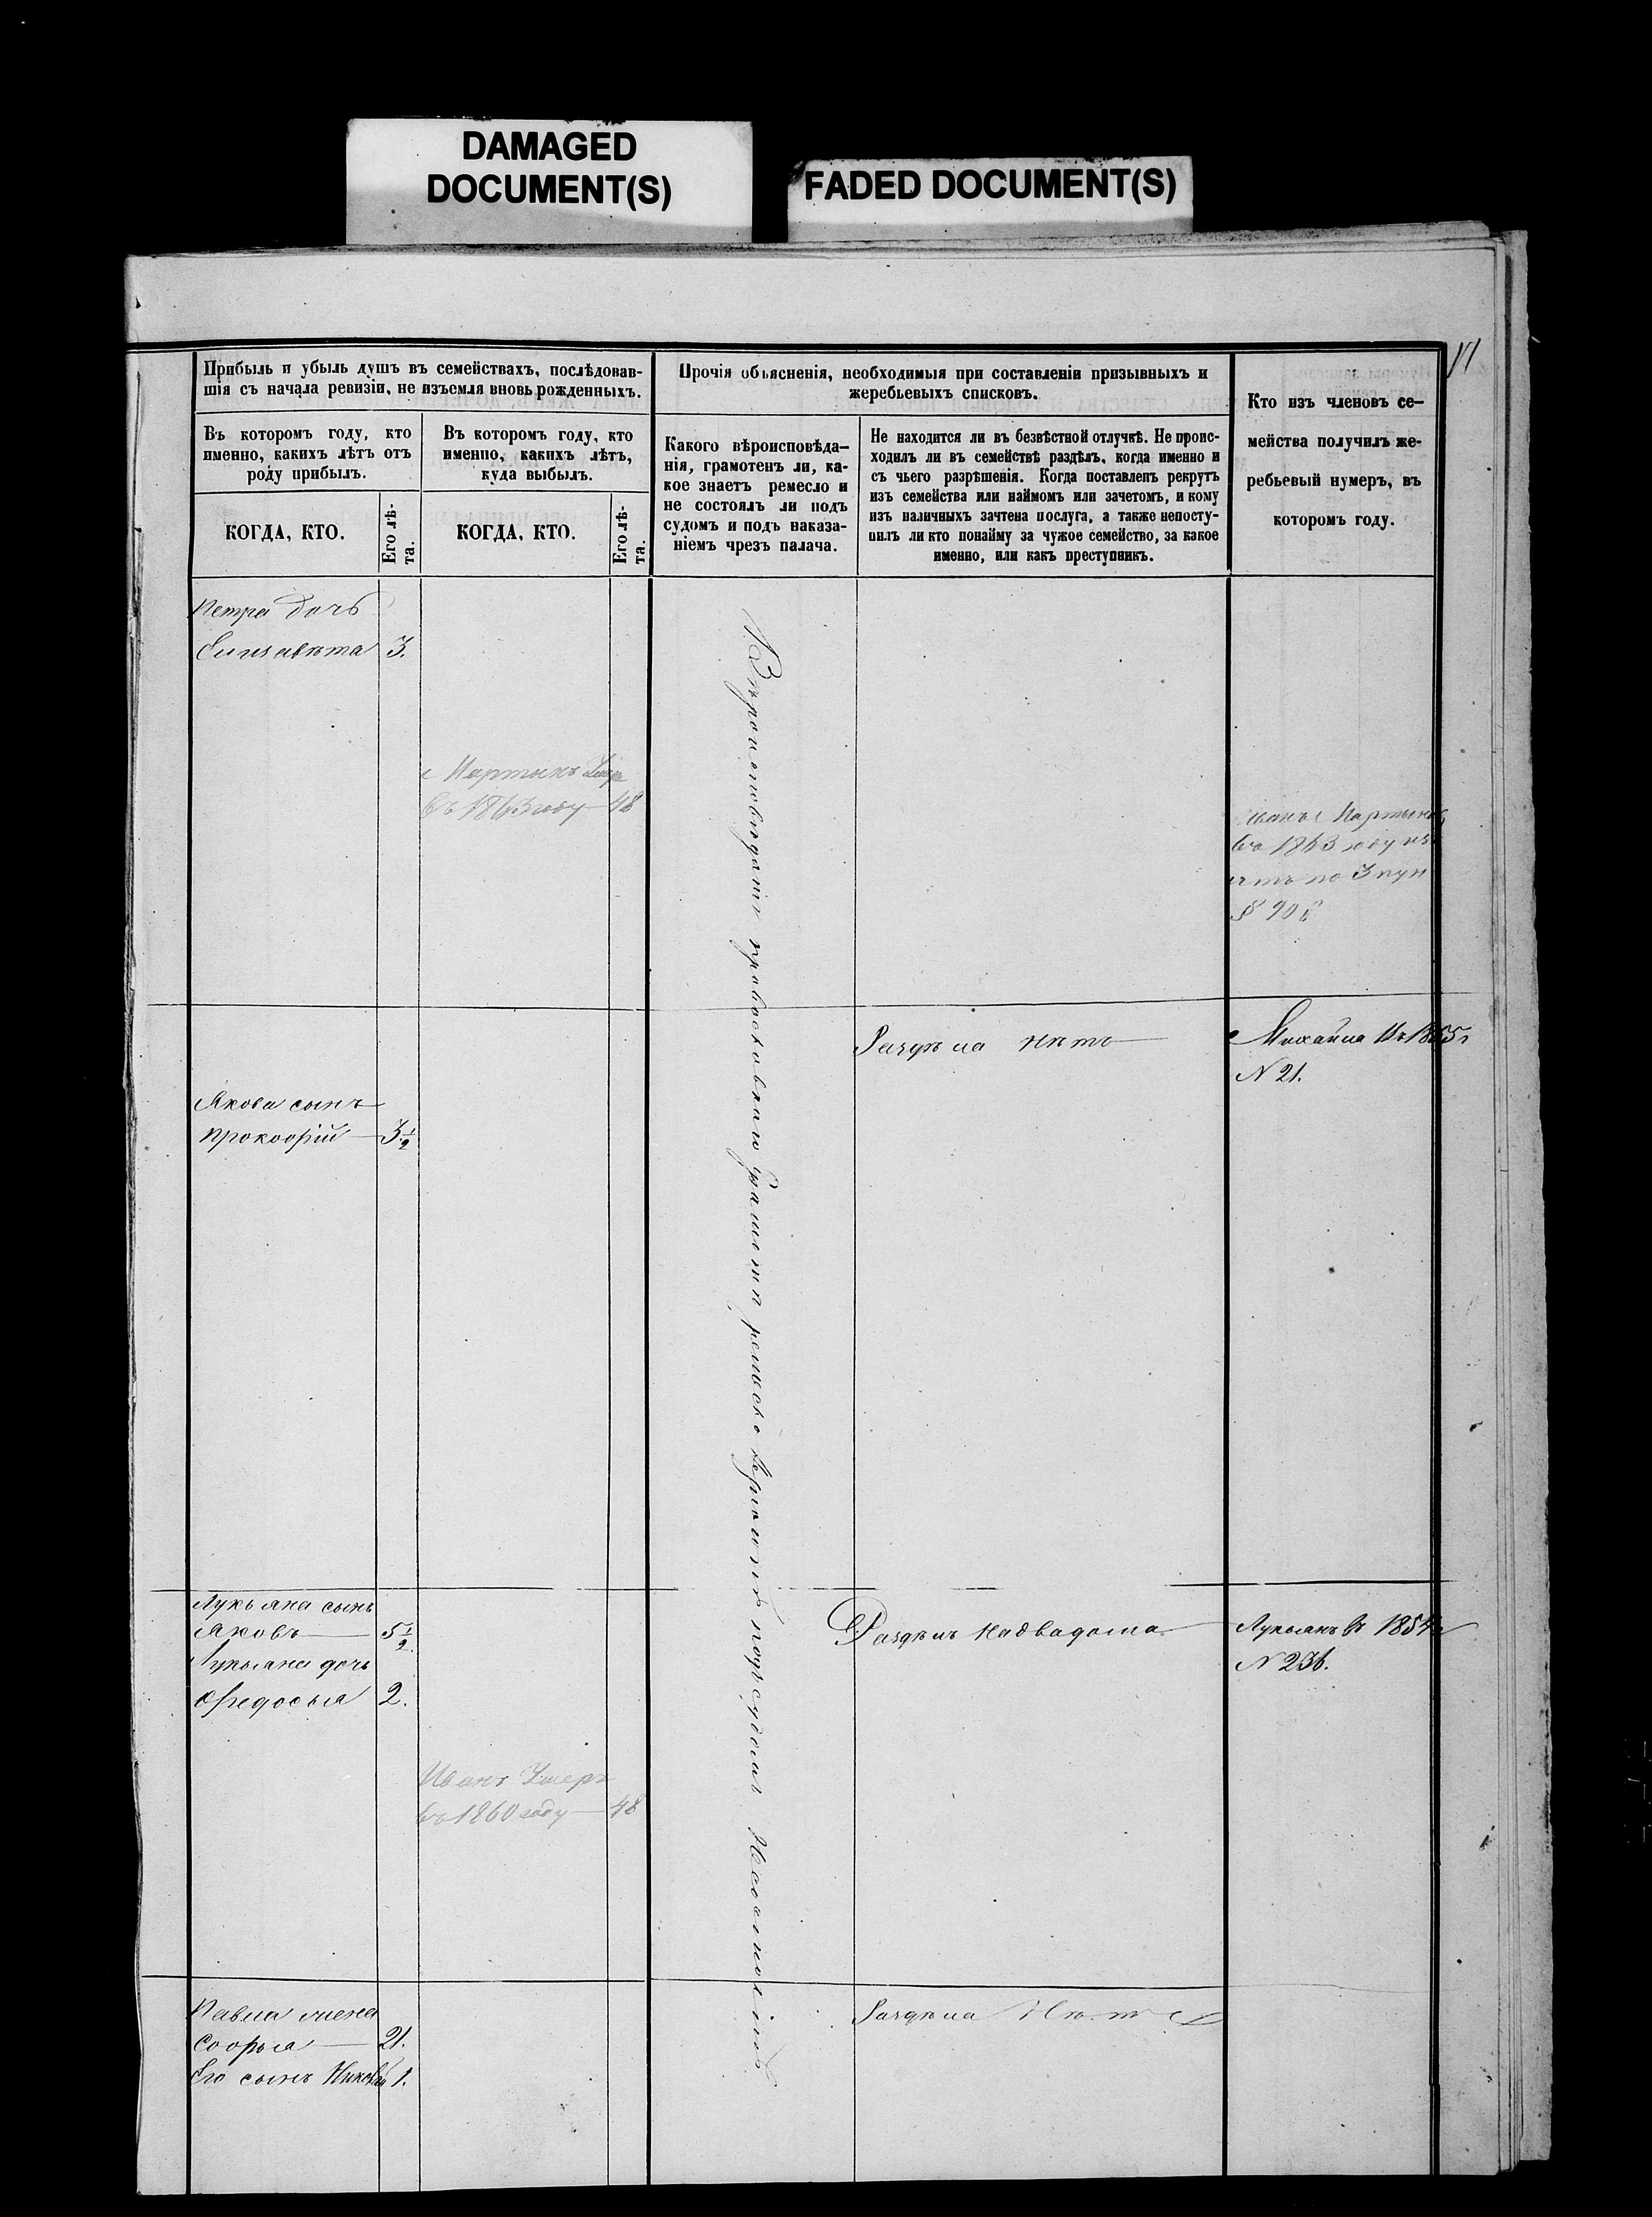 DAMAGED
DOCUMENT(S)
FADED DOCUMENT(S)
Прибыль и убыль душъ въ семействахъ, послѣдовав-
шія съ начала ревизіи, не изъемля вновь рожденныхъ.
Въ которомъ году, кто
именно, какихъ лѣтъ отъ
роду прибылъ.
КОГДА, КТО.
Его лѣ-
та.
Въ которомъ году, кто
именно, какихъ лѣтъ,
куда выбылъ.
КОГДА, КТО.
Его лѣ-
та.
Прочія объясненія, необходимыя при составленіи призывныхъ и
жеребьевыхъ списковъ.
Какого вѣроисповѣда-
нія, грамотенъ ли, ка-
кое знаетъ ремесло и
не состоялъ ли подъ
судомъ и подъ наказа-
ніемъ чрезъ палача.
Не находится ли въ безвѣстной отлучкѣ. Не проис-
ходилъ ли въ семействѣ раздѣлъ, когда именно и
съ чьего разрѣшенія. Когда поставленъ рекрутъ
изъ семейства или наймомъ или зачетомъ, и кому
изъ наличныхъ зачтена послуга, а также непосту-
пилъ ли кто понайму за чужое семейство, за какое
именно, или какъ преступникъ.
Кто изъ членовъ се-
мейства получилъ же-
ребьевый нумеръ, въ
которомъ году.
Петра дочь
Елизавѣта 3.
Мартынъ Умеръ
въ 1863 году 48
Мартынъ
въ 1863 году
по 3 пун
§ 90
Раздѣла нѣтъ
Михайла въ 1865
N 21.
Якова сынъ
Прокофій 3 1/2
Лукьяна сынъ
Яковъ 5 1/2
Лукьяна дочь
Федосья 2.
Раздѣлъ на два дома
Лукьянъ въ 1854
N 236.
Иванъ Умеръ
въ 1860 году 48
Павла жена
Софья 21.
Его сынъ Николай 1.
Раздѣла Нѣтъ